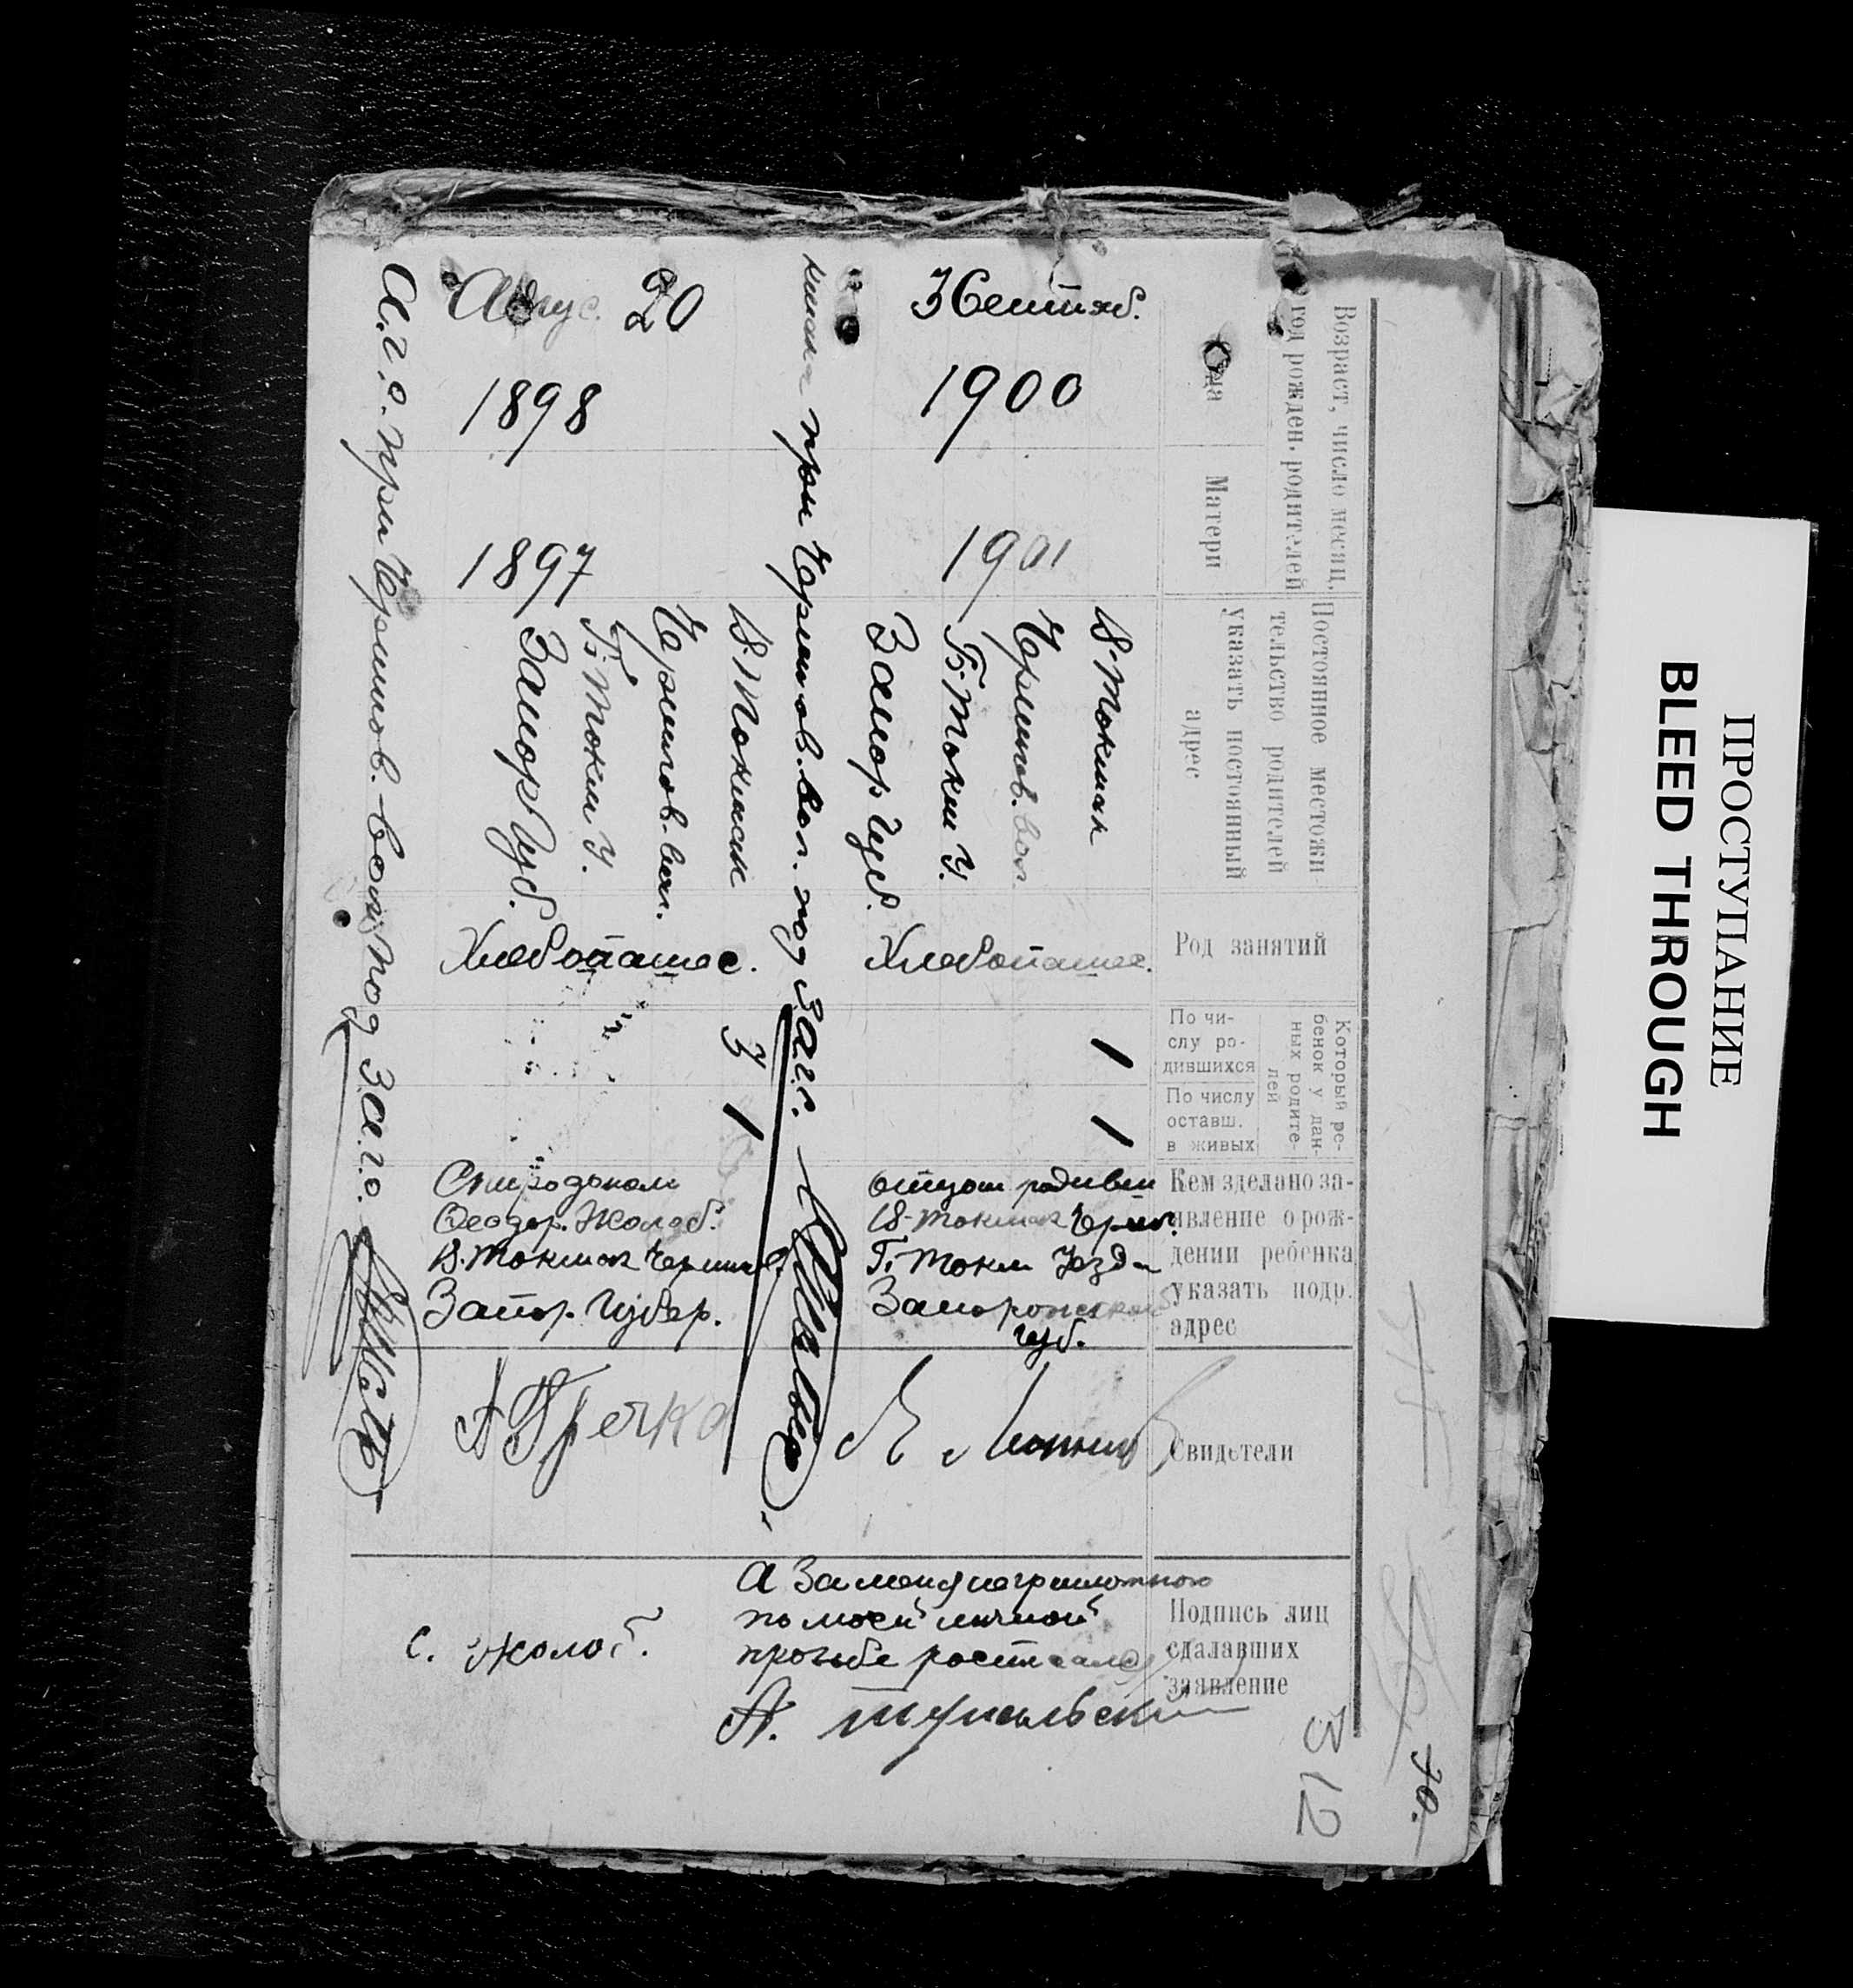 Возраст, число месяц,
год рожден. родителей
Матери
Постоянное местожи-
тельство родителей
указать постоянный
адрес
Род занятий
Который ре-
бенок у дан-
ных родите-
лей
По чи-
слу ро-
дившихся
По числу
оставш.
в живых
Кем зделано за-
явление о рож-
дении ребенка
указать подр.
адрес
Свидетели
Подпись лиц
сдалавших
заявление
3 Сентяб.
1900
1901
В-Токмак
Чернигов. вол.
Б. Токм У.
Запор Губ.
Хлебопашес.
1
1
отцом
В-Токмак Черниг.
Токм Уезда
Запорожской
губ.
А за меня неграмотного
по моей личной
прозьбе
А.
при Чернигов. вол. под Загс.
Авгус. 20
1898
1897
В. Токмак
Чернигов. вол.
Б. Токм У.
Запор Губ.
Хлебопашес.
3
1
Феодор. Жолоб.
В. Токмак Чернигов.
Запор. Губер.
А Гречка
С. Жолоб.
при Чернигов. под
312
70.
ПРОСТУПАНИЕ
BLEED THROUGH